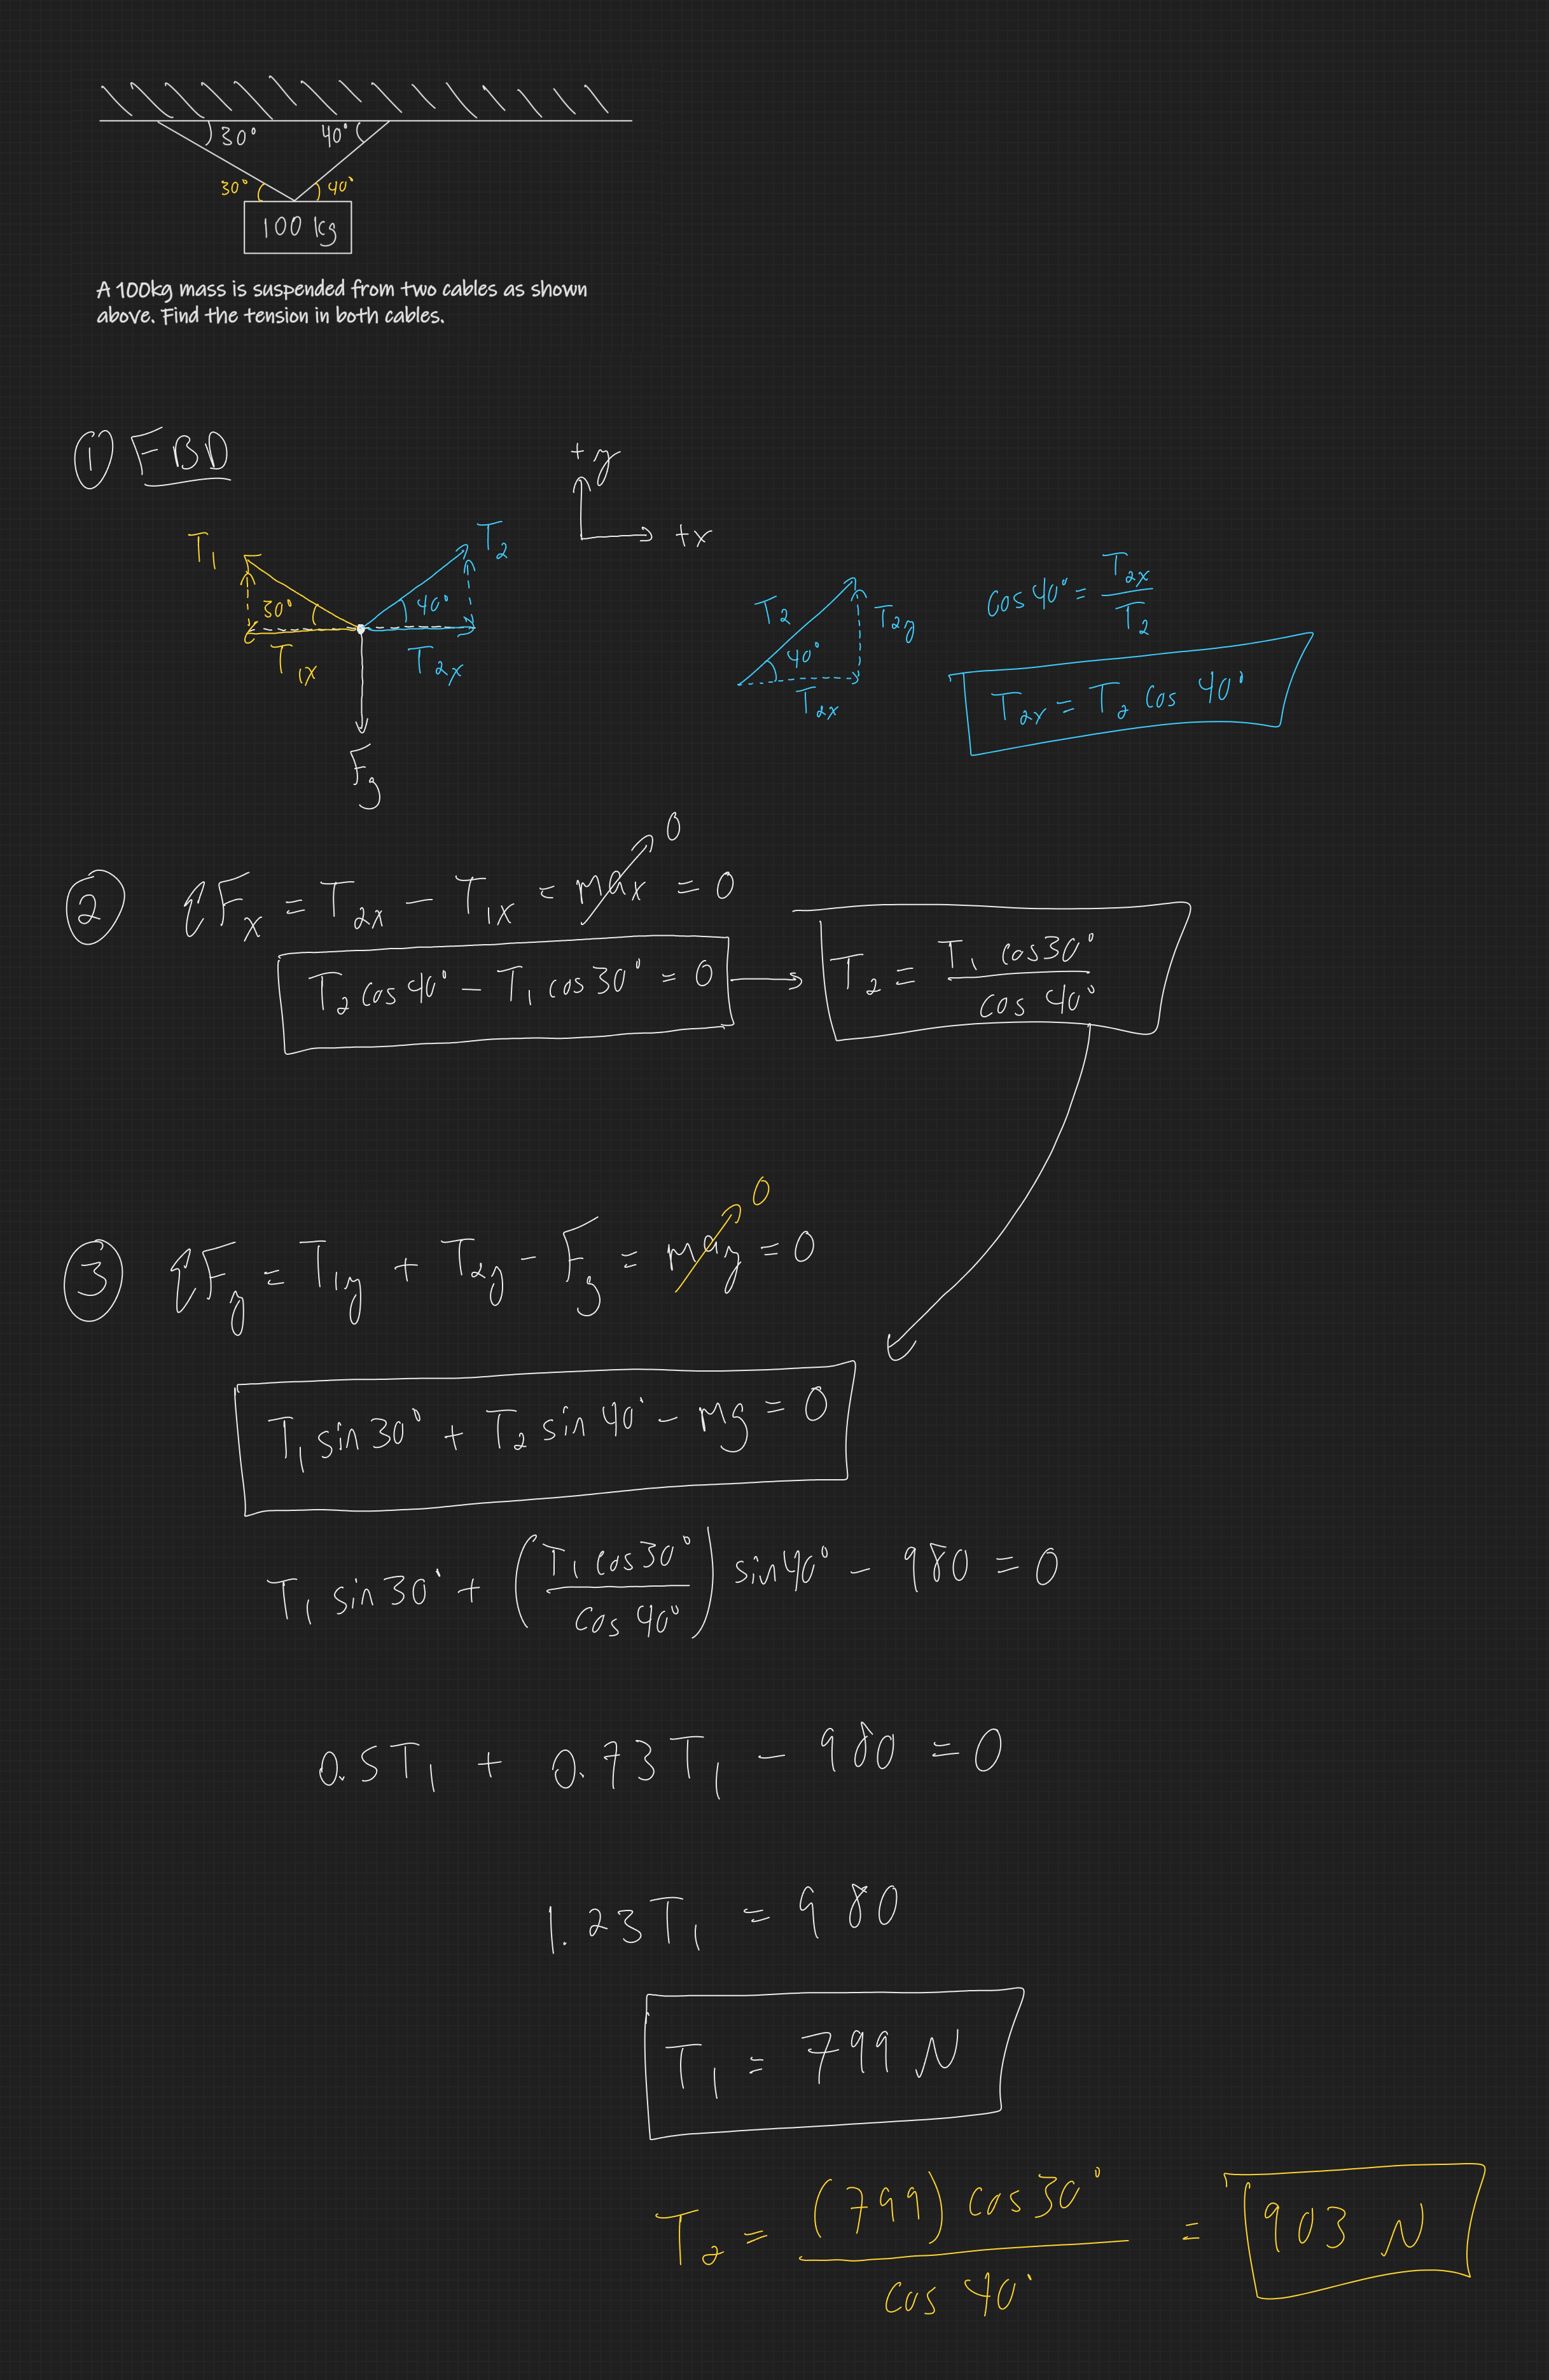 30° 40°
30° 40°
100 kg
A 100kg mass is suspended from two cables as shown
above. Find the tension in both cables.
① FBD
+y
+x
T₁ T₂
30° 40°
T₁ₓ T₂ₓ
Fg
T₂ T₂y
40°
T₂ₓ
cos 40° = T₂ₓ / T₂
T₂ₓ = T₂ cos 40°
② ΣFₓ = T₂ₓ − T₁ₓ = maₓ = 0
0
T₂ cos 40° − T₁ cos 30° = 0 → T₂ = T₁ cos 30° / cos 40°
③ ΣFy = T₁y + T₂y − Fg = may = 0
0
T₁ sin 30° + T₂ sin 40° − mg = 0
T₁ sin 30° + (T₁ cos 30° / cos 40°) sin 40° − 980 = 0
0.5T₁ + 0.73T₁ − 980 = 0
1.23T₁ = 980
T₁ = 799 N
T₂ = (799) cos 30° / cos 40° = 903 N